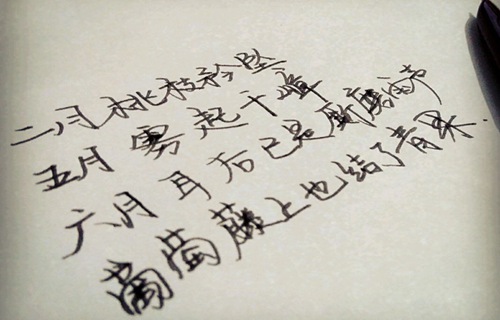 二月桃枝纷坠
五月雾起千嶂
六月耳后已是断磨雨声
葡萄藤上也结了青果.